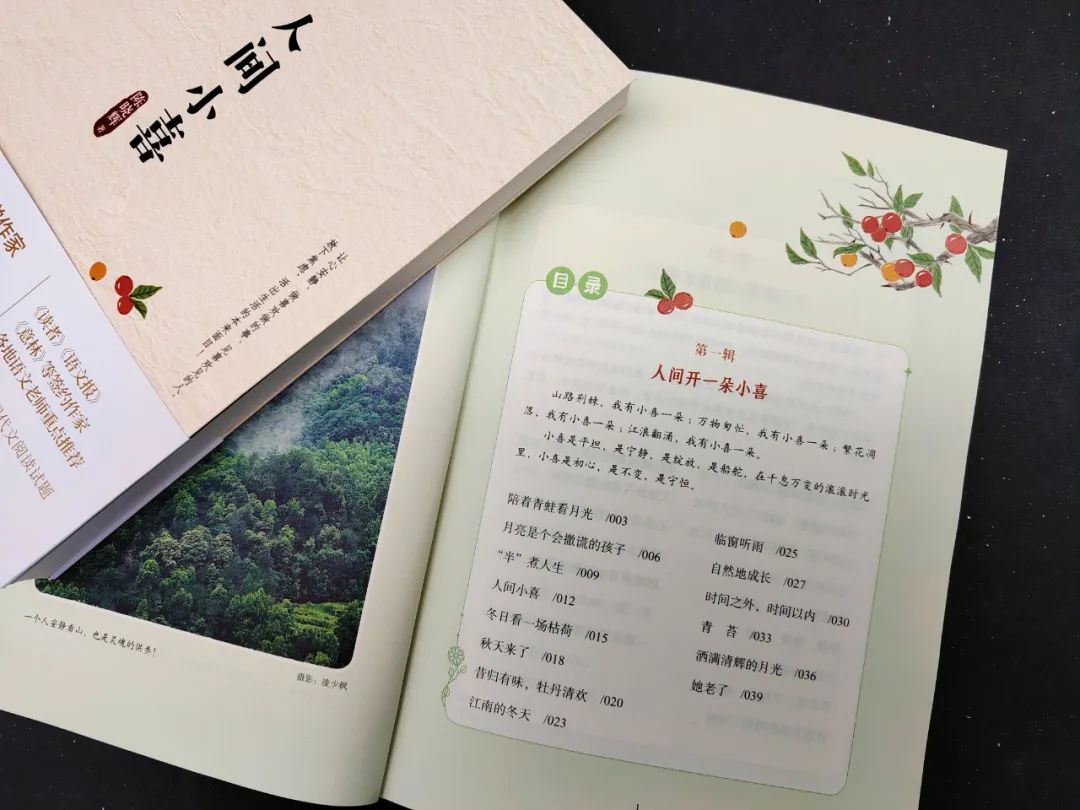 人间小喜
陈晓辉 著
让心安静，做喜欢做的事，见喜欢见的人，
放下焦虑，活出生活的本来面目！
作家
《读者》《语文报》
《意林》等签约作家
各地语文老师重点推荐
代文阅读试题
一个人安静看山，也是灵魂的供养！
摄影：凌少枫
目录
第一辑
人间开一朵小喜
山路荆棘，我有小喜一朵；万物匆忙，我有小喜一朵；繁花凋
落，我有小喜一朵；江浪翻涌，我有小喜一朵。
小喜是平坦，是宁静，是绽放，是船舵，在千息万变的滚滚时光
里，小喜是初心，是不变，是守恒。
陪着青蛙看月光 /003
月亮是个会撒谎的孩子 /006
“半”煮人生 /009
人间小喜 /012
冬日看一场枯荷 /015
秋天来了 /018
昔归有味，牡丹清欢 /020
江南的冬天 /023
临窗听雨 /025
自然地成长 /027
时间之外，时间以内 /030
青 苔 /033
洒满清辉的月光 /036
她老了 /039